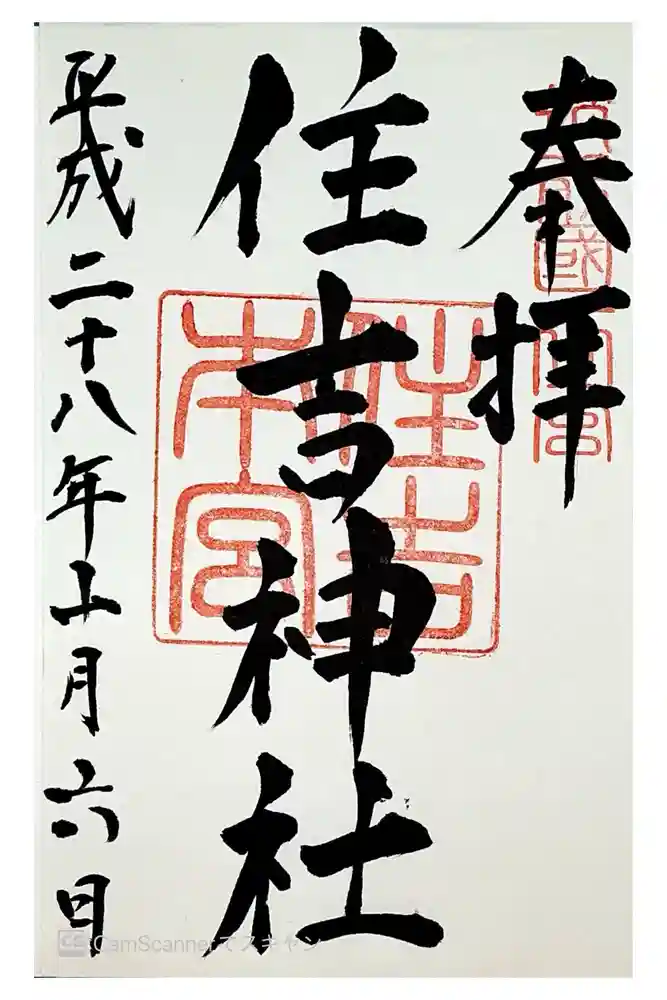 奉拝
住吉神社
住吉
本宮
平成二十八年十一月六日
CS CamScannerでスキャン